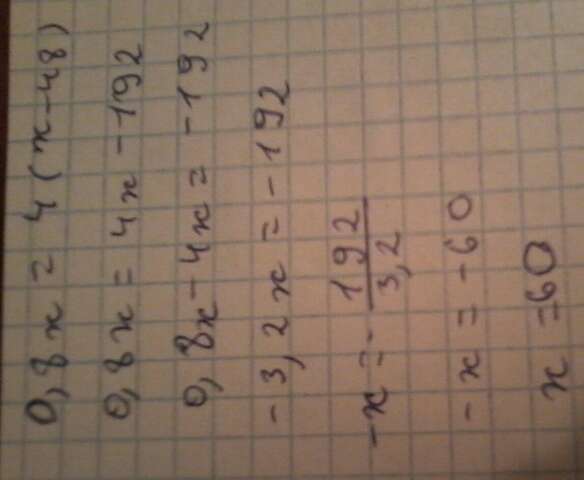 0,8x = 4(x-48)
0,8x = 4x - 192
0,8x - 4x = -192
-3,2x = -192
-x = - 192/3,2
-x = -60
x = 60